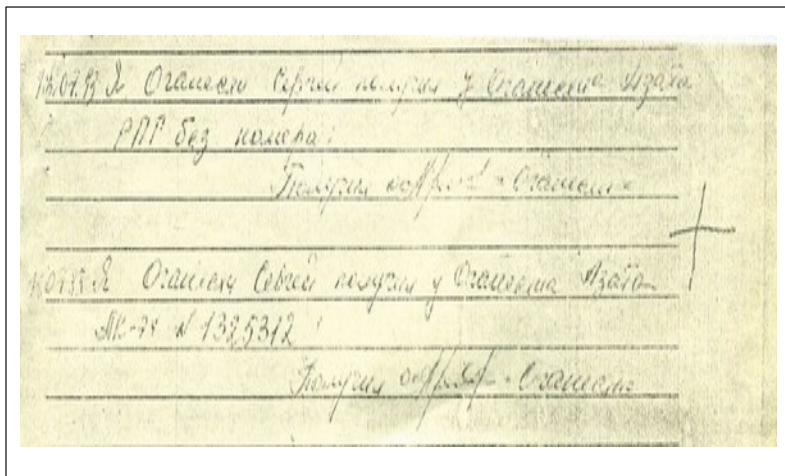 Я Оганесян Сергей получил у Оганесяна Азата
РПГ без номера
Получил Оганесян
Я Оганесян Сергей получил у Оганесяна Азата
АК-74 № 1325312
Получил Оганесян